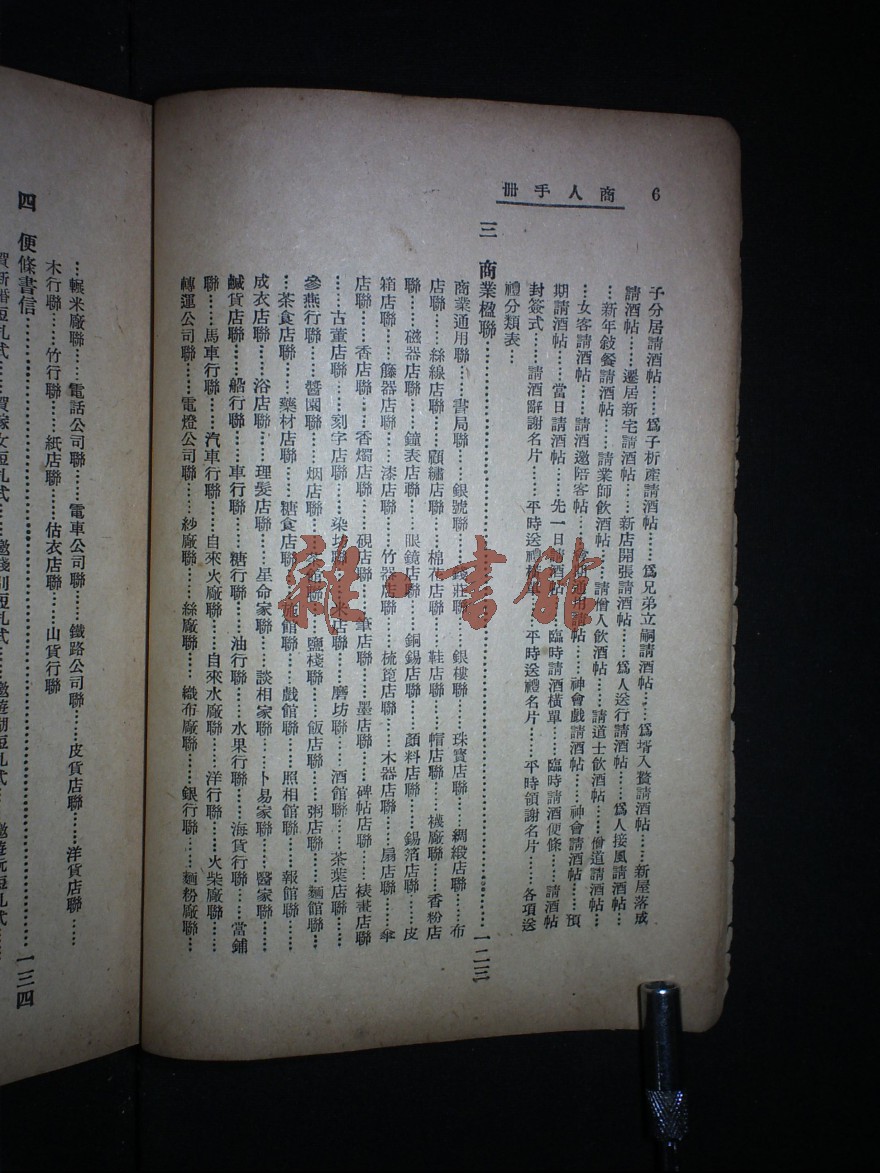 6 商人手册
子分居請酒帖……爲子析產請酒帖……爲兄弟立嗣請酒帖……爲壻入贅請酒帖……新屋落成
請酒帖……遷居新宅請酒帖……新店開張請酒帖……爲人送行請酒帖……爲人接風請酒帖……
……新年敍餐請酒帖……請業師飲酒帖……請僧人飲酒帖……請道士飲酒帖……僧道請酒帖……
……女客請酒帖……請酒邀陪客帖……通用請帖……神會戲請酒帖……神會請酒帖……預
期請酒帖……當日請酒帖……先一日請酒帖……臨時請酒橫單……臨時請酒便條……請酒帖
封簽式……請酒辭謝名片……平時送禮單……平時送禮名片……平時領謝名片……各項送
禮分類表……
三 商業楹聯……一二三
商業通用聯……書局聯……銀號聯……錢莊聯……銀樓聯……珠寶店聯……綢緞店聯……布
店聯……絲線店聯……顧繡店聯……棉花店聯……鞋店聯……帽店聯……襪廠聯……香粉店
聯……磁器店聯……鐘表店聯……眼鏡店聯……銅錫店聯……顏料店聯……錫箔店聯……皮
箱店聯……籐器店聯……漆店聯……竹器店聯……梳篦店聯……木器店聯……扇店聯……傘
店聯……香店聯……香燭店聯……硯店聯……筆店聯……墨店聯……碑帖店聯……裱畫店聯
……古董店聯……刻字店聯……染坊聯……米店聯……磨坊聯……酒館聯……茶葉店聯……
參燕行聯……醬園聯……烟店聯……茶館聯……鹽棧聯……飯店聯……粥店聯……麵館聯……
……茶食店聯……藥材店聯……糖食店聯……館聯……戲館聯……照相館聯……報館聯……
成衣店聯……浴店聯……理髮店聯……星命家聯……談相家聯……卜易家聯……醫家聯……
鹹貨店聯……船行聯……車行聯……糖行聯……油行聯……水果行聯……海貨行聯……當鋪
聯……馬車行聯……汽車行聯……自來火廠聯……自來水廠聯……洋行聯……火柴廠聯……
轉運公司聯……電燈公司聯……紗廠聯……絲廠聯……織布廠聯……銀行聯……麵粉廠聯……
……輾米廠聯……電話公司聯……電車公司聯……鐵路公司聯……皮貨店聯……洋貨店聯……
木行聯……竹行聯……紙店聯……估衣店聯……山貨行聯
四 便條書信……一三四
雜·書館